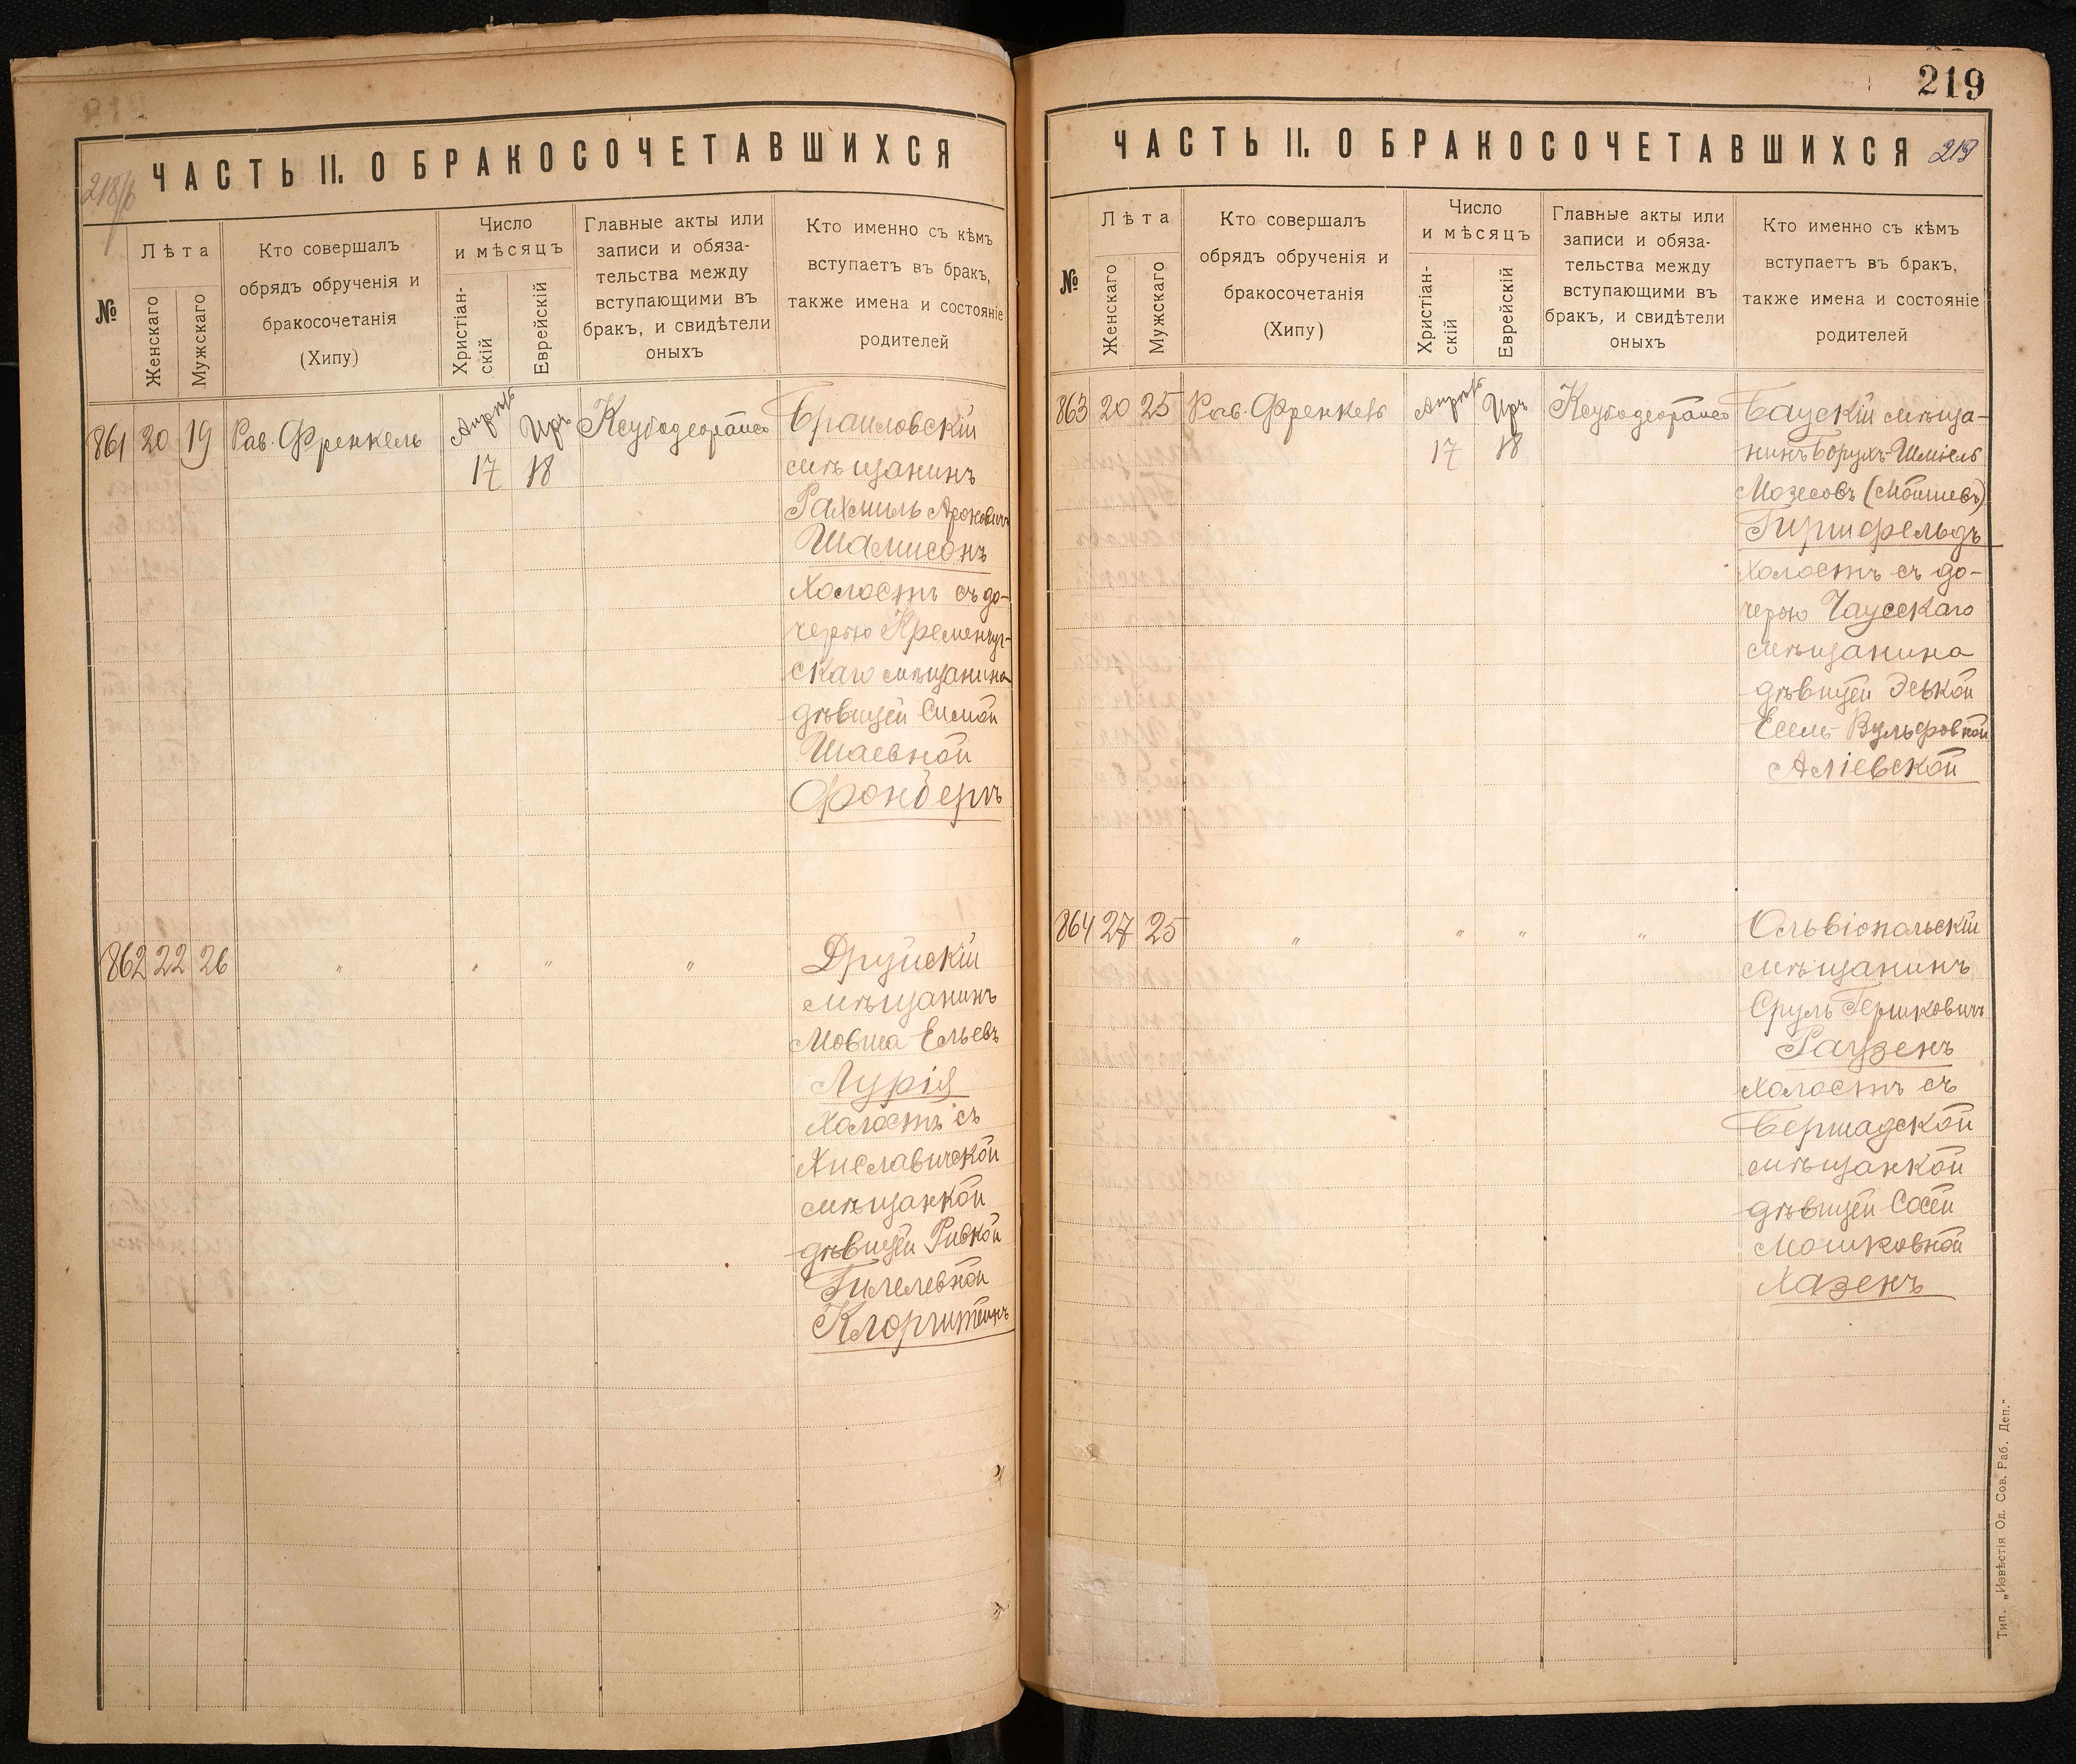 ЧАСТЬ II. О БРАКОСОЧЕТАВШИХСЯ
218/б
№
Лѣта
Женскаго
Мужскаго
Кто совершалъ
обрядъ обрученія и
бракосочетанія
(Хипу)
Число
и мѣсяцъ
Христіан-
скій
Еврейскій
Главные акты или
записи и обяза-
тельства между
вступающими въ
бракъ, и свидѣтели
оныхъ
Кто именно съ кѣмъ
вступаетъ въ бракъ,
также имена и состояніе
родителей
861 20 19 Рав. Френкель Апрель 17 Иръ 18
Браиловскій
мѣщанинъ
Рахмиль Ароновичъ
Шамисонъ
холостъ съ до-
черью Кременчуг-
скаго мѣщанина
дѣвицей Симой
Шаевной
Фонбергъ
862 22 26 " " " "
Друйскій
мѣщанинъ
Мовша Ельевъ
Лурія
холостъ съ
Хиславичской
мѣщанкой
дѣвицей Ривкой
Гилелевной
Клоргитейнъ
219
ЧАСТЬ II. О БРАКОСОЧЕТАВШИХСЯ
219
№
Лѣта
Женскаго
Мужскаго
Кто совершалъ
обрядъ обрученія и
бракосочетанія
(Хипу)
Число
и мѣсяцъ
Христіан-
скій
Еврейскій
Главные акты или
записи и обяза-
тельства между
вступающими въ
бракъ, и свидѣтели
оныхъ
Кто именно съ кѣмъ
вступаетъ въ бракъ,
также имена и состояніе
родителей
863 20 25 Рав. Френкель Апрель 17 Иръ 18
Баускій мѣща-
нинъ Борухъ-Шміель
Мозесовъ (Мойшевъ)
Гиршфельдъ
холостъ съ до-
черью Чаусскаго
мѣщанина
дѣвицей Эськой
Есель-Вульфовной
Аліевской
864 27 25 " " " "
Ольвіопольскій
мѣщанинъ
Сруль Гершковичъ
Раузенъ
холостъ съ
Бершадской
мѣщанкой
дѣвицей Сосей
Мошковной
Хазенъ
Тип. „Извѣстія Од. Сов. Раб. Деп."